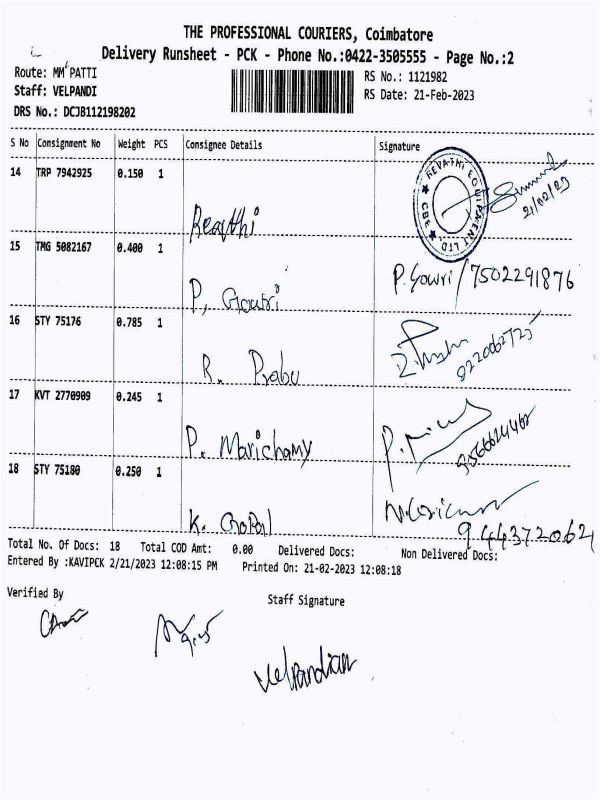 THE PROFESSIONAL COURIERS, Coimbatore
Delivery Runsheet - PCK - Phone No.:0422-3505555 - Page No.:2
Route: MM PATTI
RS No.: 1121982
Staff: VELPANDI
RS Date: 21-Feb-2023
DRS No.: DCJB112198202
S No Consignment No Weight PCS Consignee Details Signature
14 TRP 7942925 0.150 1
REVATHI EQUIPMENT LTD. ★ CBE ★
21/02/23
15 TMG 5082167 0.400 1
P. Gowri P. Gowri / 7502291876
16 STY 75176 0.785 1
R. Prabu
17 KVT 2770909 0.245 1
P. Marichamy
18 STY 75180 0.250 1
K. Gopal
Total No. Of Docs: 18 Total COD Amt: 0.00 Delivered Docs: Non Delivered Docs:
Entered By :KAVIPCK 2/21/2023 12:08:15 PM Printed On: 21-02-2023 12:08:18
Verified By Staff Signature
Velpandian